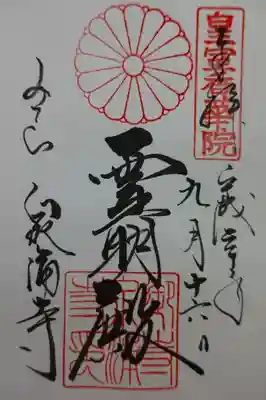 皇室香華院
奉拝
平成
九月十六日
霊明殿
みてら 泉涌寺